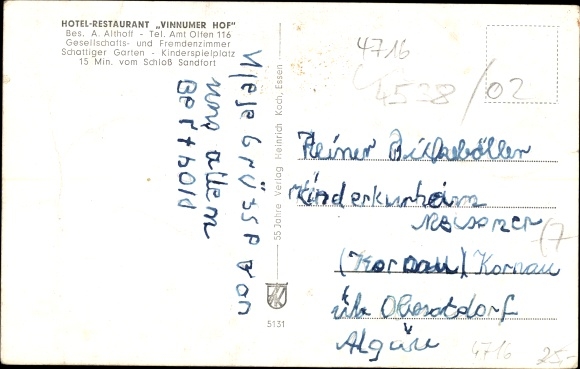 HOTEL-RESTAURANT „VINNUMER HOF"
Bes. A. Althoff - Tel. Amt Olfen 116
Gesellschafts- und Fremdenzimmer
Schattiger Garten - Kinderspielplatz
15 Min. vom Schloß Sandfort
Viele Grüsse von
uns allem
Berthold
55 Jahre Verlag Heinrich Koch, Essen
5131
4716
4538/02
Heiner
Kinderkurheim
(Kornau) Kornau
üb Oberstdorf
Algäu
4716 25,-